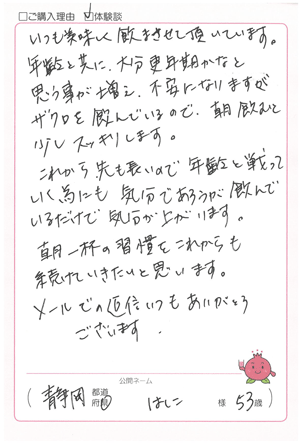 □ご購入理由 ☑体験談
いつも美味しく飲ませて頂いています。
年齢と共に、大分更年期かなと
思う事が増え、不安になりますが
ザクロを飲んでいるので、朝飲むと
少しスッキリします。
これから先も長いので年齢と戦って
いく為にも気分であろうが飲んで
いるだけで気分が上がります。
朝一杯の習慣をこれからも
続けていきたいと思います。
メールでの返信いつもありがとう
ございます.
公開ネーム
(静岡 都道府県 はしこ 様 53歳)